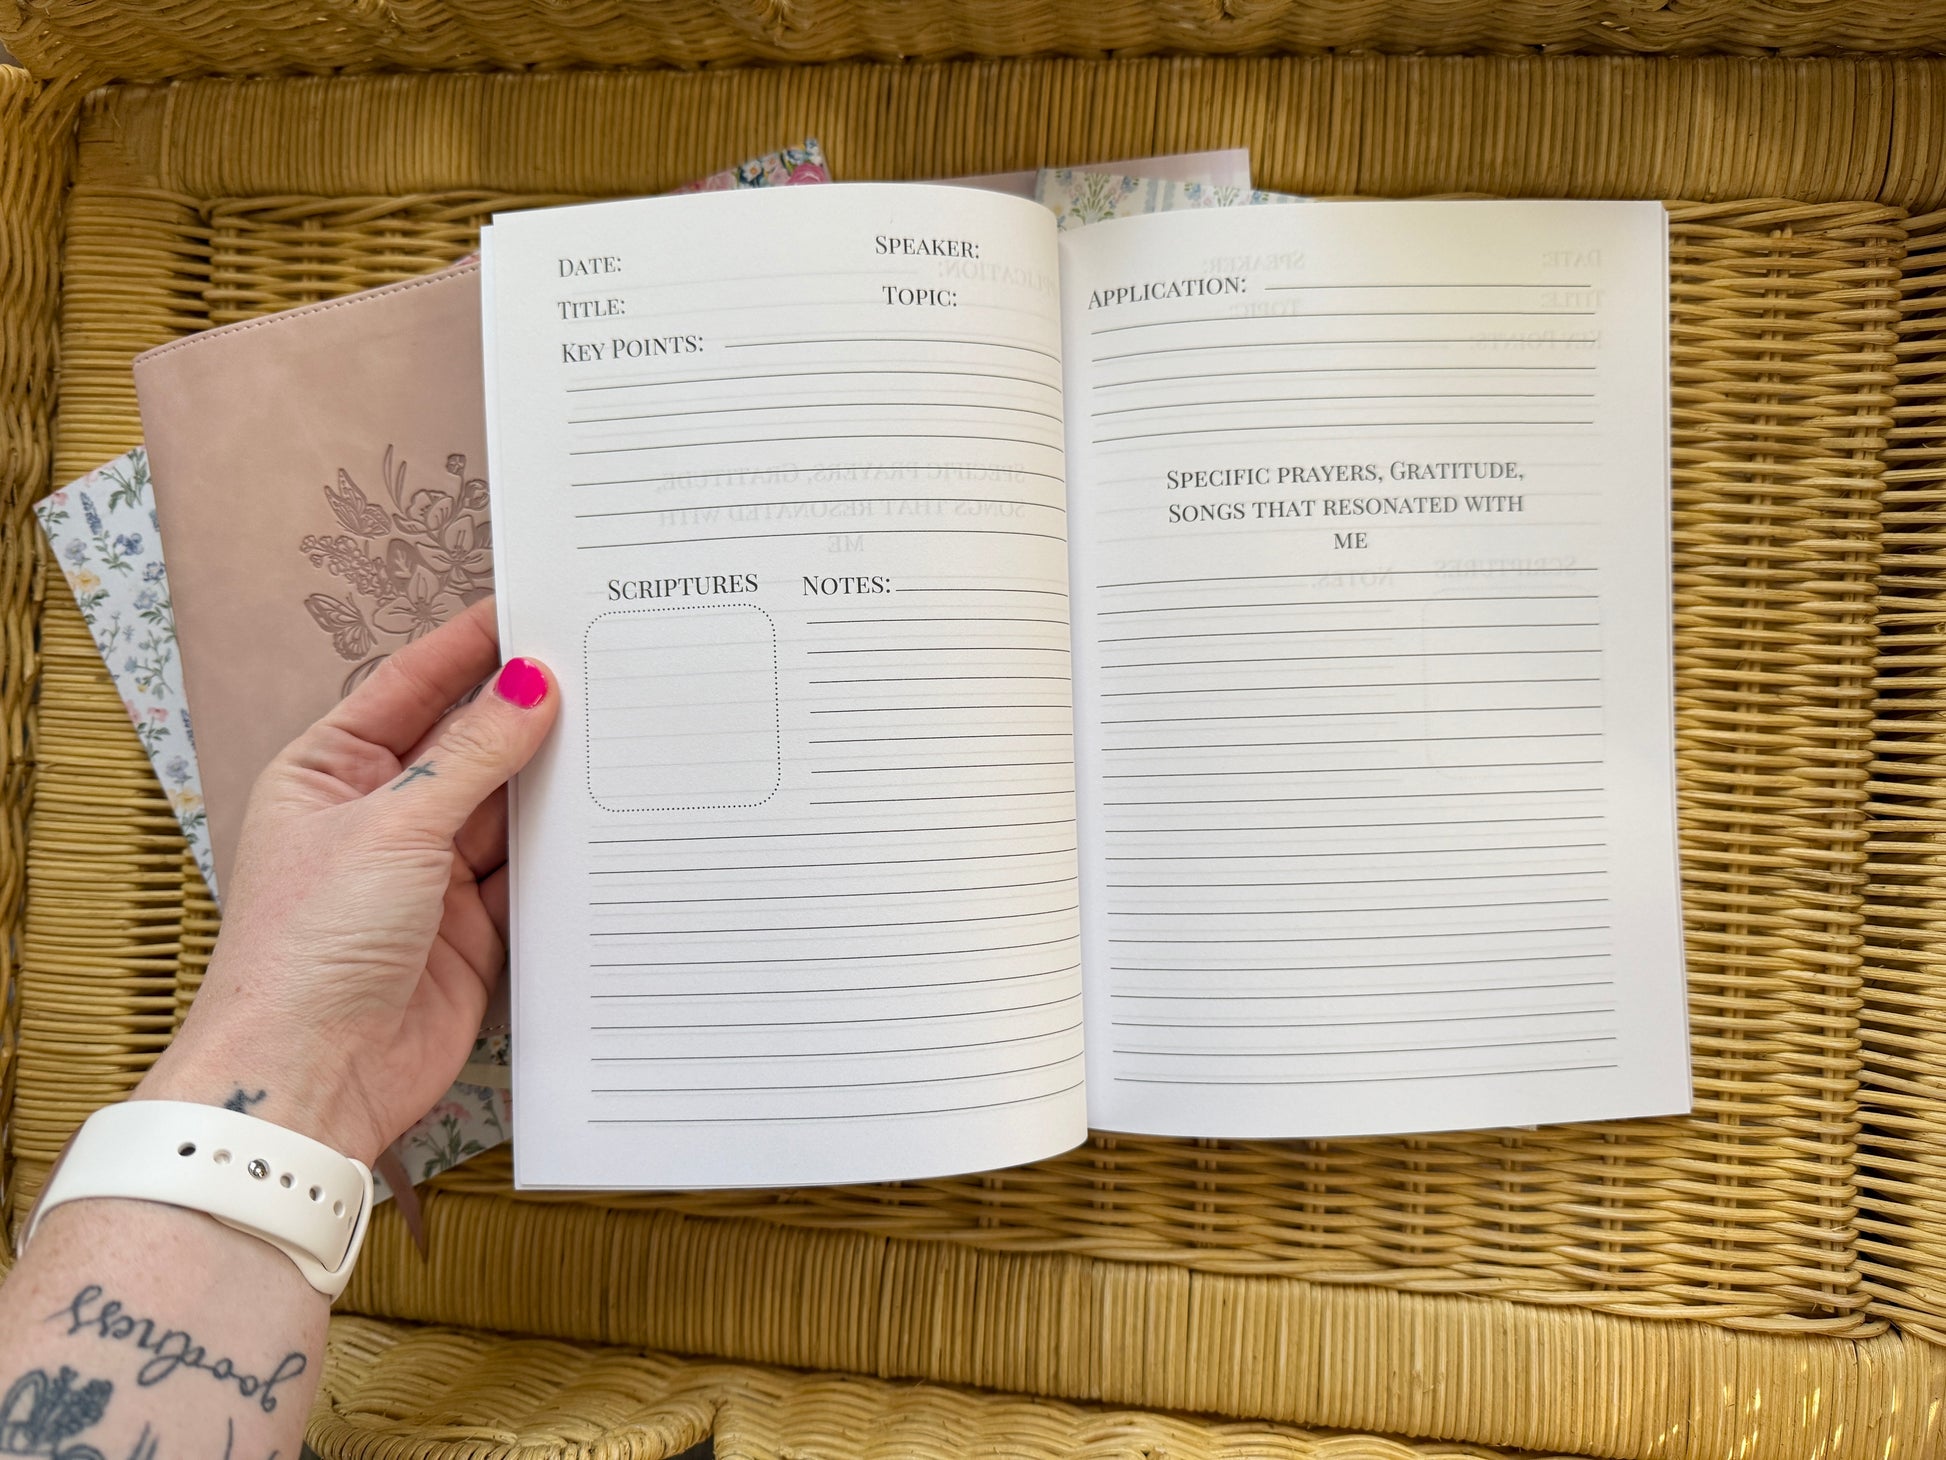 Date:
Speaker:
Title:
Topic:
Key Points:
Scriptures
Notes:
Application:
Specific prayers, Gratitude,
songs that resonated with
me
goodness